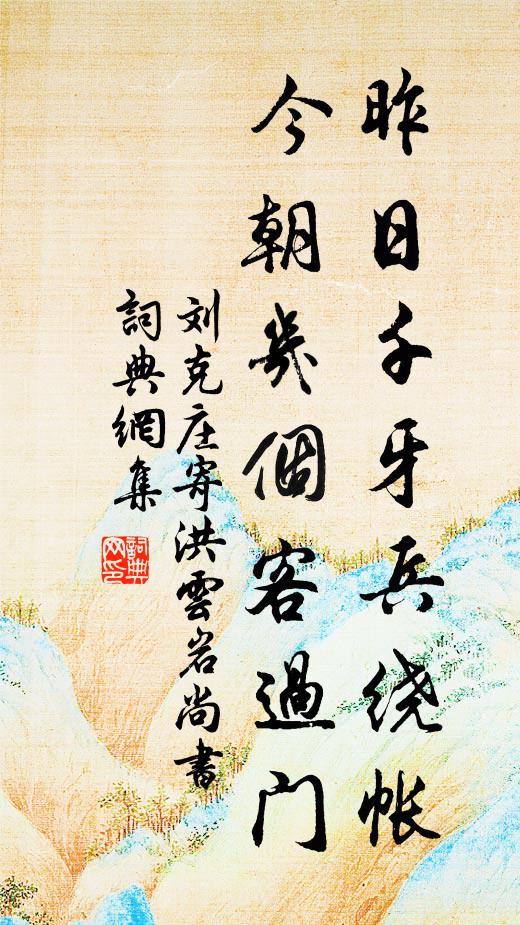 昨日千牙兵绕帐
今朝几個客過门
刘克庄寄洪雲岩尚書
詞典網集
詞典网印